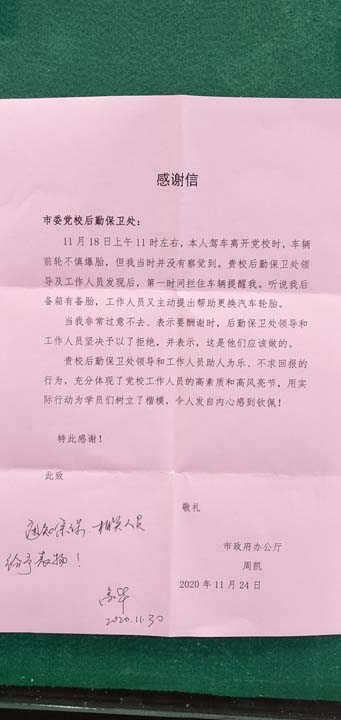 感谢信
市委党校后勤保卫处:
11月18日上午11时左右,本人驾车离开党校时,车辆
前轮不慎爆胎,但我当时并没有察觉到。贵校后勤保卫处领
导及工作人员发现后,第一时间拦住车辆提醒我。听说我后
备箱有备胎,工作人员又主动提出帮助更换汽车轮胎。
当我非常过意不去、表示要酬谢时,后勤保卫处领导和
工作人员坚决予以了拒绝,并表示,这是他们应该做的。
贵校后勤保卫处领导和工作人员助人为乐、不求回报的
行为,充分体现了党校工作人员的高素质和高风亮节,用实
际行动为学员们树立了楷模,令人发自内心感到钦佩!
特此感谢!
此致
敬礼
市政府办公厅
周凯
2020年11月24日
相关人员
给予表扬!
2020.11.30